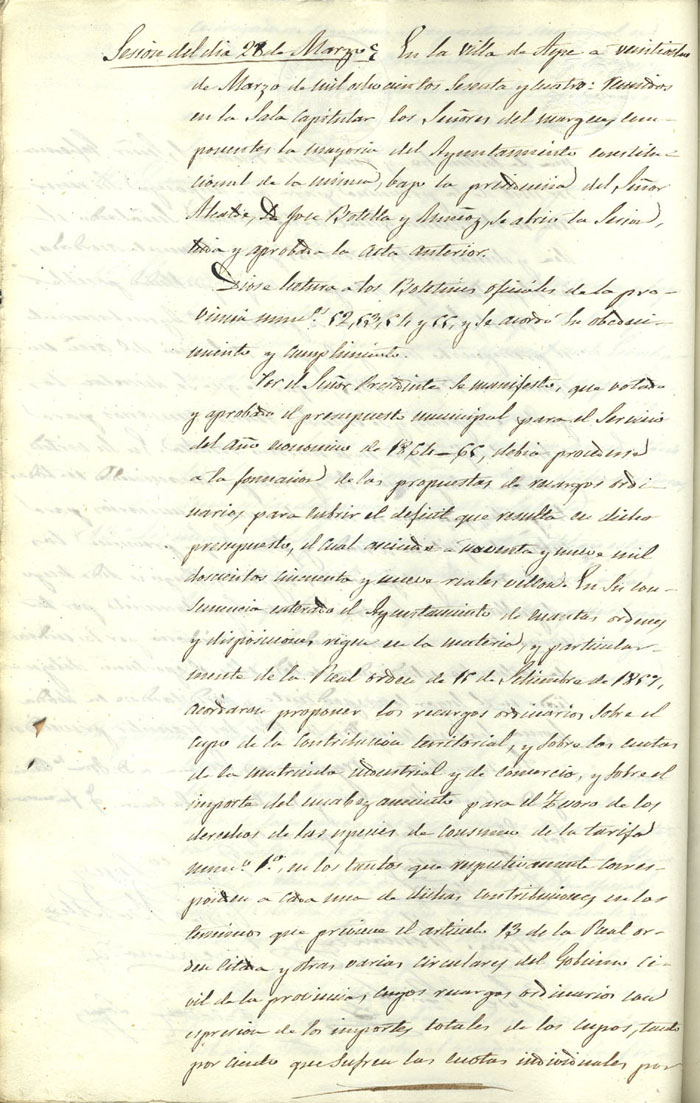 Sesion del dia 28 de Marzo En la villa de Aspe a veintiocho
de Marzo de mil ochocientos sesenta y cuatro: reunidos
en la Sala Capitular los Señores del margen, com-
ponentes la mayoria del Ayuntamiento constitu-
cional de la misma, bajo la presidencia del Señor
Alcalde, D. Jose Botella y Muñoz, se abrio la Sesion,
leida y aprobada la acta anterior.
Diose lectura a los Boletines oficiales de la pro-
vincia num.s 52, 53, 54 y 55, y se acordó su obedeci-
miento y cumplimiento.
Por el Señor Presidente se manifesto, que votado
y aprobado el presupuesto municipal para el Servicio
del año economico de 1864-65, debia procederse
a la formacion de las propuestas de recargos ordi-
narios para cubrir el deficit que resulta en dicho
presupuesto, el cual asciende a noventa y nueve mil
doscientos cincuenta y nueve reales vellon. En su con-
secuencia enterado el Ayuntamiento de cuantas ordenes
y disposiciones rigen en la materia, y particular-
mente de la Real orden de 15 de Setiembre de 1857,
acordaron proponer los recargos ordinarios sobre el
cupo de la Contribucion territorial, y sobre las cuotas
de la matricula industrial y de comercio, y sobre el
importe del encabezamiento para el Tesoro de los
derechos de las especies de consumo de la tarifa
num.o 1.o, en los tantos que respectivamente corres-
ponden a cada una de dichas contribuciones en los
terminos que previene el articulo 13 de la Real or-
den citada y otras varias circulares del Gobierno Ci-
vil de la provincia, cuyos recargos ordinarios con
espresion de los importes totales de los cupos, tanto
por ciento que sufren las cuotas individuales por